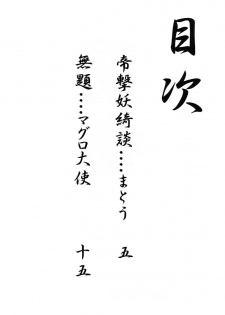 目次
帝撃妖綺談……まとう 五
無題……マグロ大使 十五